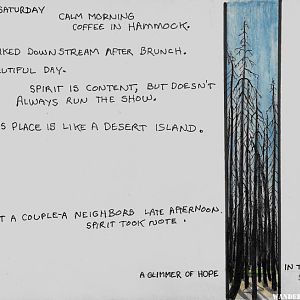 SATURDAY
CALM MORNING
COFFEE IN HAMMOCK.
DOWNSTREAM AFTER BRUNCH.
DAY.
SPIRIT IS CONTENT, BUT DOESN'T
ALWAYS RUN THE SHOW.
PLACE IS LIKE A DESERT ISLAND.
A COUPLE-A NEIGHBORS LATE AFTERNOON.
SPIRIT TOOK NOTE.
A GLIMMER OF HOPE
IN